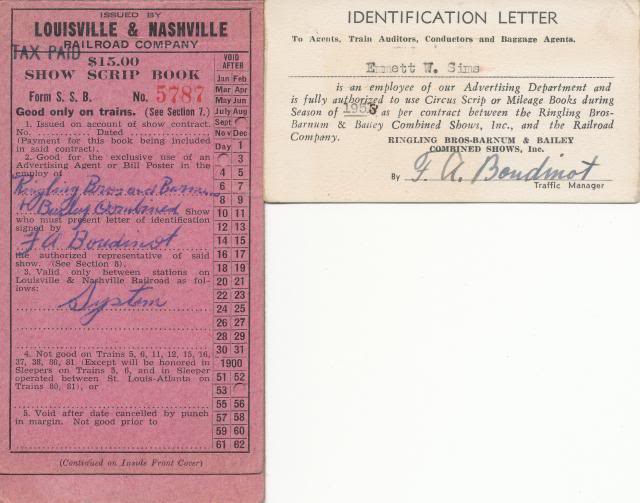 ISSUED BY
LOUISVILLE & NASHVILLE
RAILROAD COMPANY
TAX PAID
$15.00
SHOW SCRIP BOOK
Form S. S. B. No. 5787
Good only on trains. (See Section 7.)
1. Issued on account of show contract.
No. .......... Dated ..........
(Payment for this book being
included in said contract).
2. Good for the exclusive use of an
Advertising Agent or Bill Poster in the
employ of
Ringling Bros and Barnum
& Bailey Combined Show
who must present letter of identification
signed by
F A Boudinot
the authorized representative of said
show. (See Section 8).
3. Valid only between stations on
Louisville & Nashville Railroad as fol-
lows:
System
4. Not good on Trains 5, 6, 11, 12, 15, 16,
37, 38, 80, 81 (Except will be honored in
Sleepers on Trains 5, 6, and in Sleeper
operated between St. Louis-Atlanta on
Trains 80, 81), or
5. Void after date cancelled by punch
in margin. Not good prior to
(Continued on Inside Front Cover)
VOID
AFTER
Jan Feb
Mar Apr
May Jun
July Aug
Sept
Nov Dec
Day 1
3
4 5
6 7
8 9
10 11
12 13
14 15
16 17
18 19
20 21
22 23
24 25
26 27
28 29
30 31
1900
51 52
53
55 56
57 58
59 60
61 62
IDENTIFICATION LETTER
To Agents, Train Auditors, Conductors and Baggage Agents.
Emmett W. Sims
is an employee of our Advertising Department and
is fully authorized to use Circus Scrip or Mileage Books during
Season of as per contract between the Ringling Bros-
Barnum & Bailey Combined Shows, Inc., and the Railroad
Company.
RINGLING BROS-BARNUM & BAILEY
COMBINED SHOWS, Inc.
By F. A. Boudinot
Traffic Manager